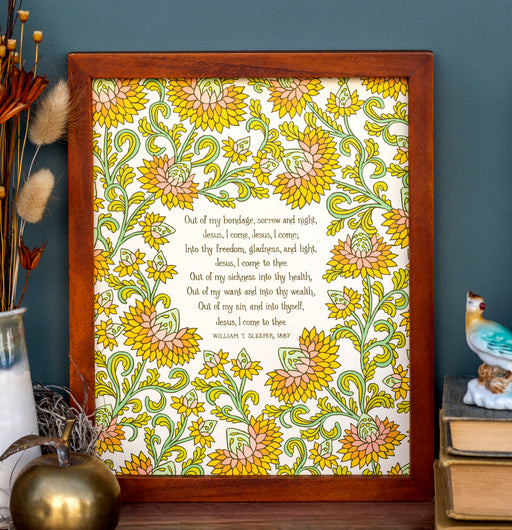 Out of my bondage, sorrow and night,
Jesus, I come, Jesus, I come;
Into thy freedom, gladness, and light,
Jesus, I come to thee.
Out of my sickness into thy health,
Out of my want and into thy wealth,
Out of my sin and into thyself,
Jesus, I come to thee.
WILLIAM T. SLEEPER, 1887